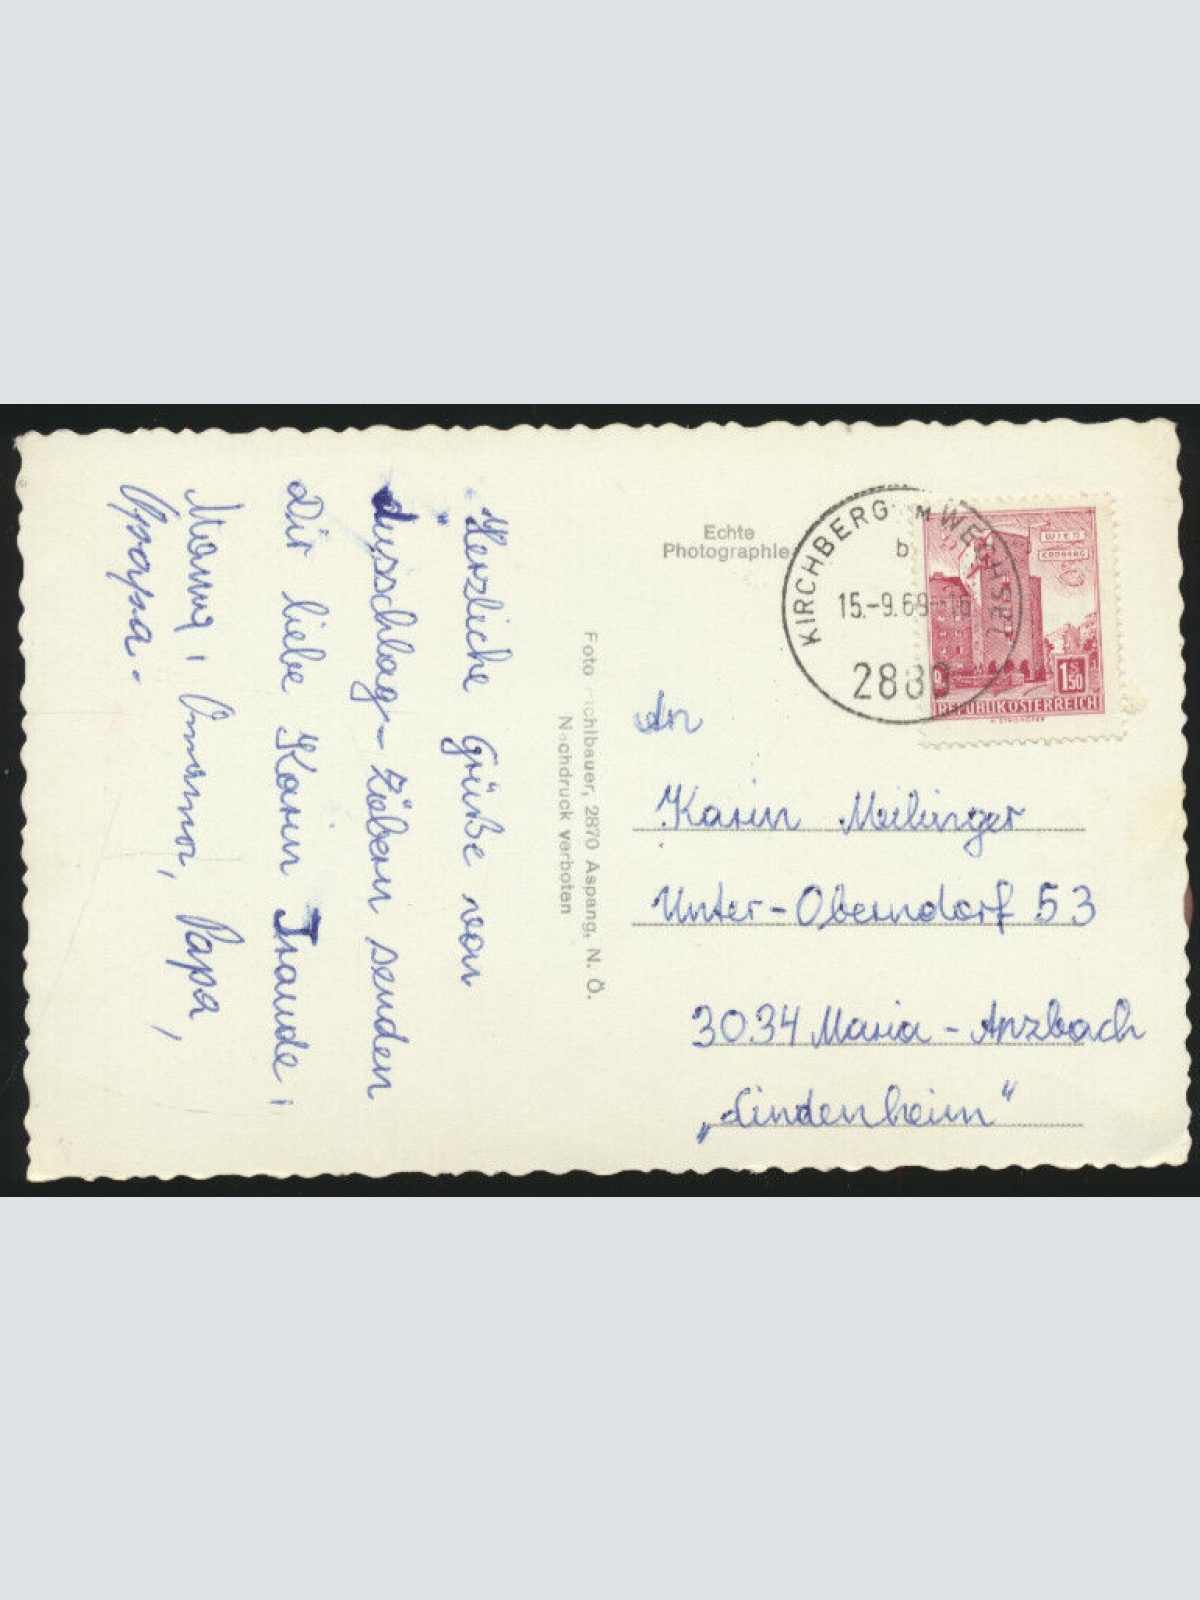 Herzliche Grüße von
Ausschlag-Zöbern senden
Dir liebe Karin Traude,
Mama, Omama, Papa,
Opapa.
Foto chlbauer, 2870 Aspang, N. Ö.
Nachdruck verboten
Echte
Photographie
KIRCHBERG AM WECHSEL
b
15.-9.69-16
2880
WIEN
ERDBERG
1 S 50
REPUBLIK ÖSTERREICH
An
Karin Meilinger
Unter-Oberndorf 53
3034 Maria-Anzbach
„Lindenheim"